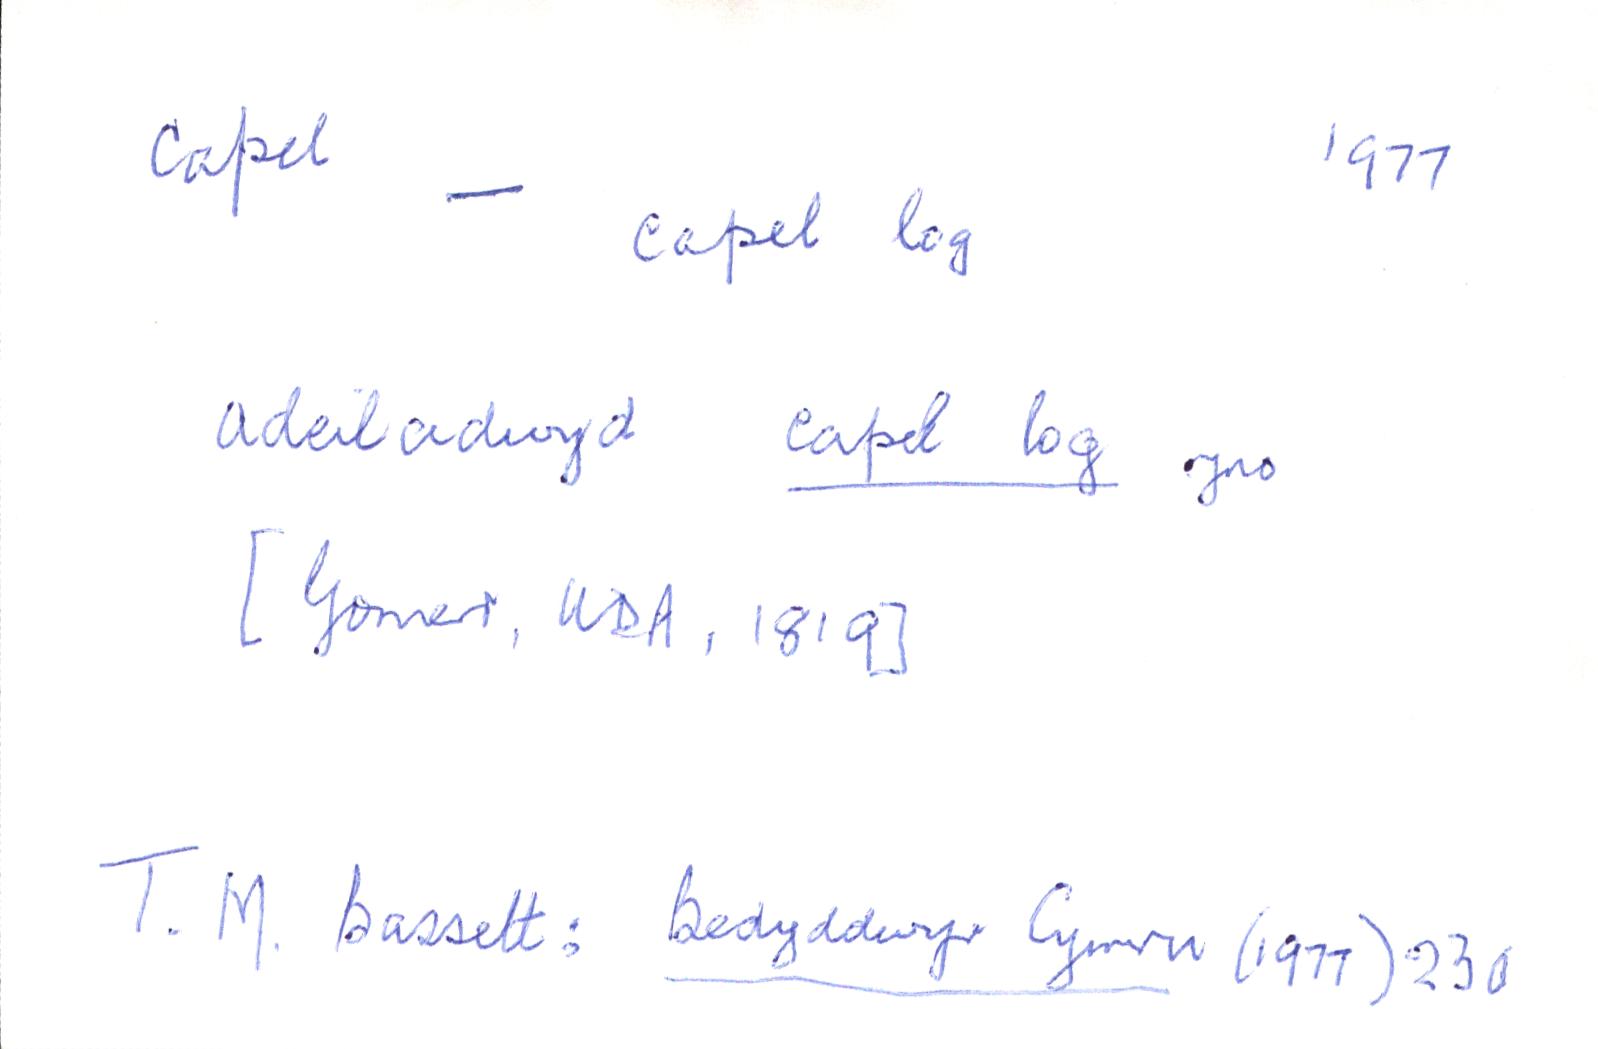 Capel — 1977
capel log
adeiladwyd capel log yno
[Gomer, UDA, 1819]
T. M. Bassett: Bedyddwyr Cymru (1977) 230